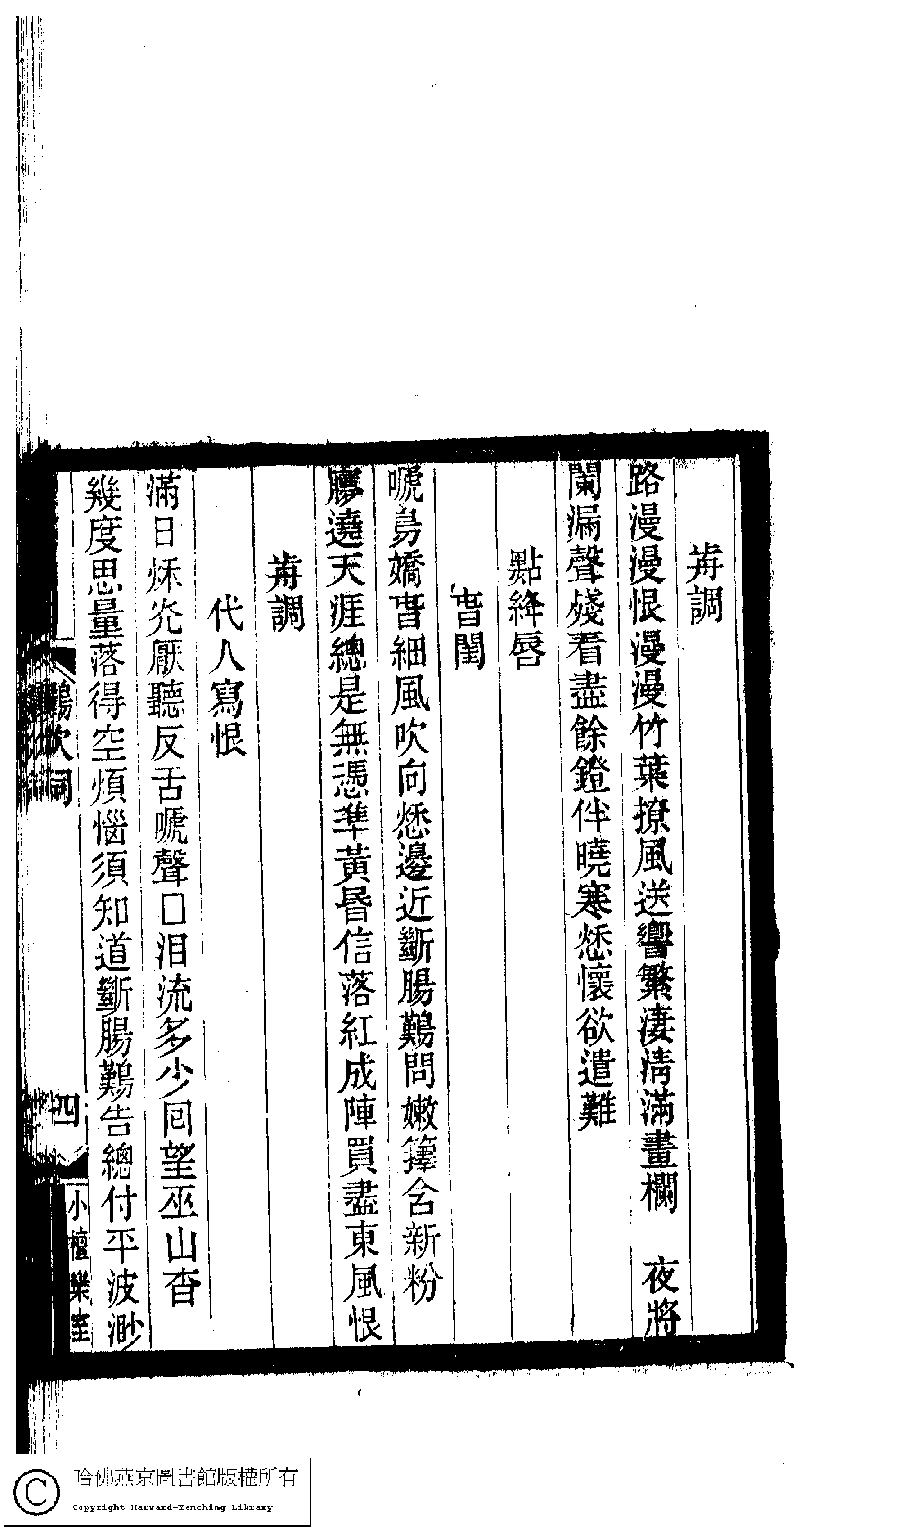 歬調
路漫漫恨漫漫竹葉撩風送響繁淒淸滿畫欄　夜將
闌漏聲殘看盡餘鐙伴曉寒愁懷欲遣難
點絳唇
旾閨
嗁鳥嬌旾細風吹向愁邊近斷腸鷬問嫩籜含新粉
㝱遶天涯總是無憑準黃昏信落紅成陣買盡東風恨
歬調
代人寫恨
滿目烁光厭聽反舌嗁聲口泪流多少回望巫山杳
幾度思量落得空煩惱須知道斷腸鷬告總付平波渺
鷬吹詞
四
小檀欒室
哈佛燕京圖書館版權所有
Copyright Harvard-Yenching Library